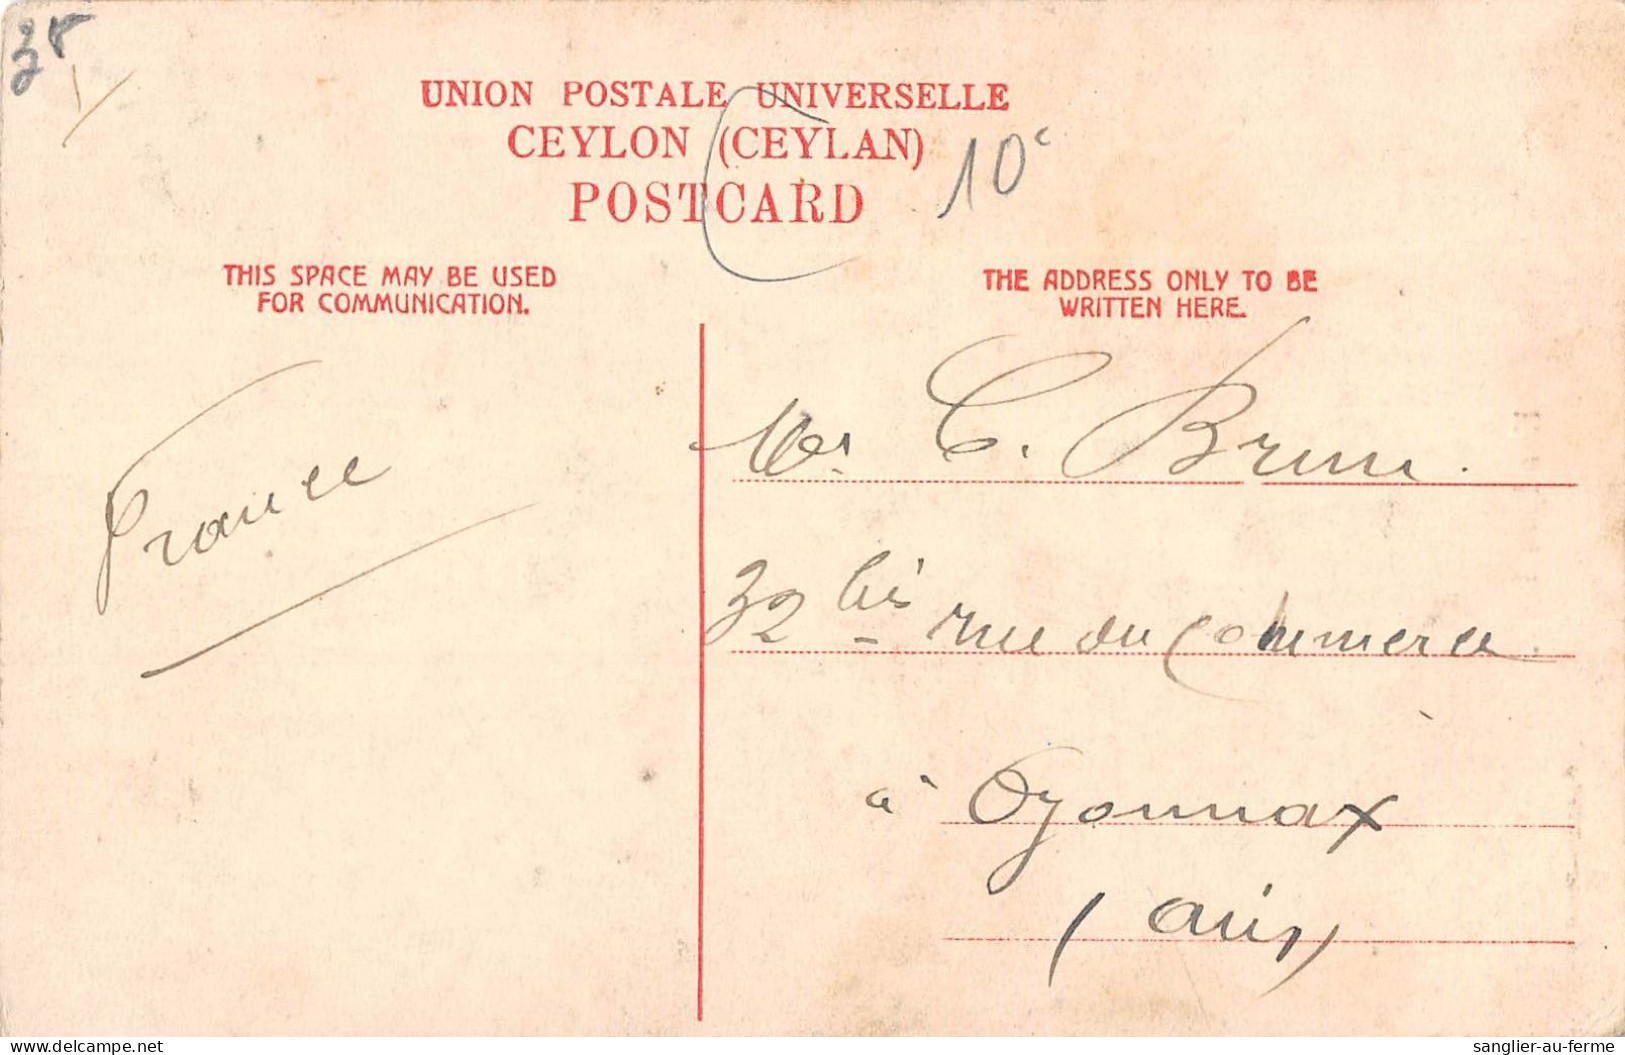 38
UNION POSTALE UNIVERSELLE
CEYLON (CEYLAN)
POSTCARD
10c
THIS SPACE MAY BE USED
FOR COMMUNICATION.
THE ADDRESS ONLY TO BE
WRITTEN HERE.
France
C. Brun.
32 bis rue du Commerce.
à Oyonnax
(Ain)
delcampe.net
sanglier-au-ferme